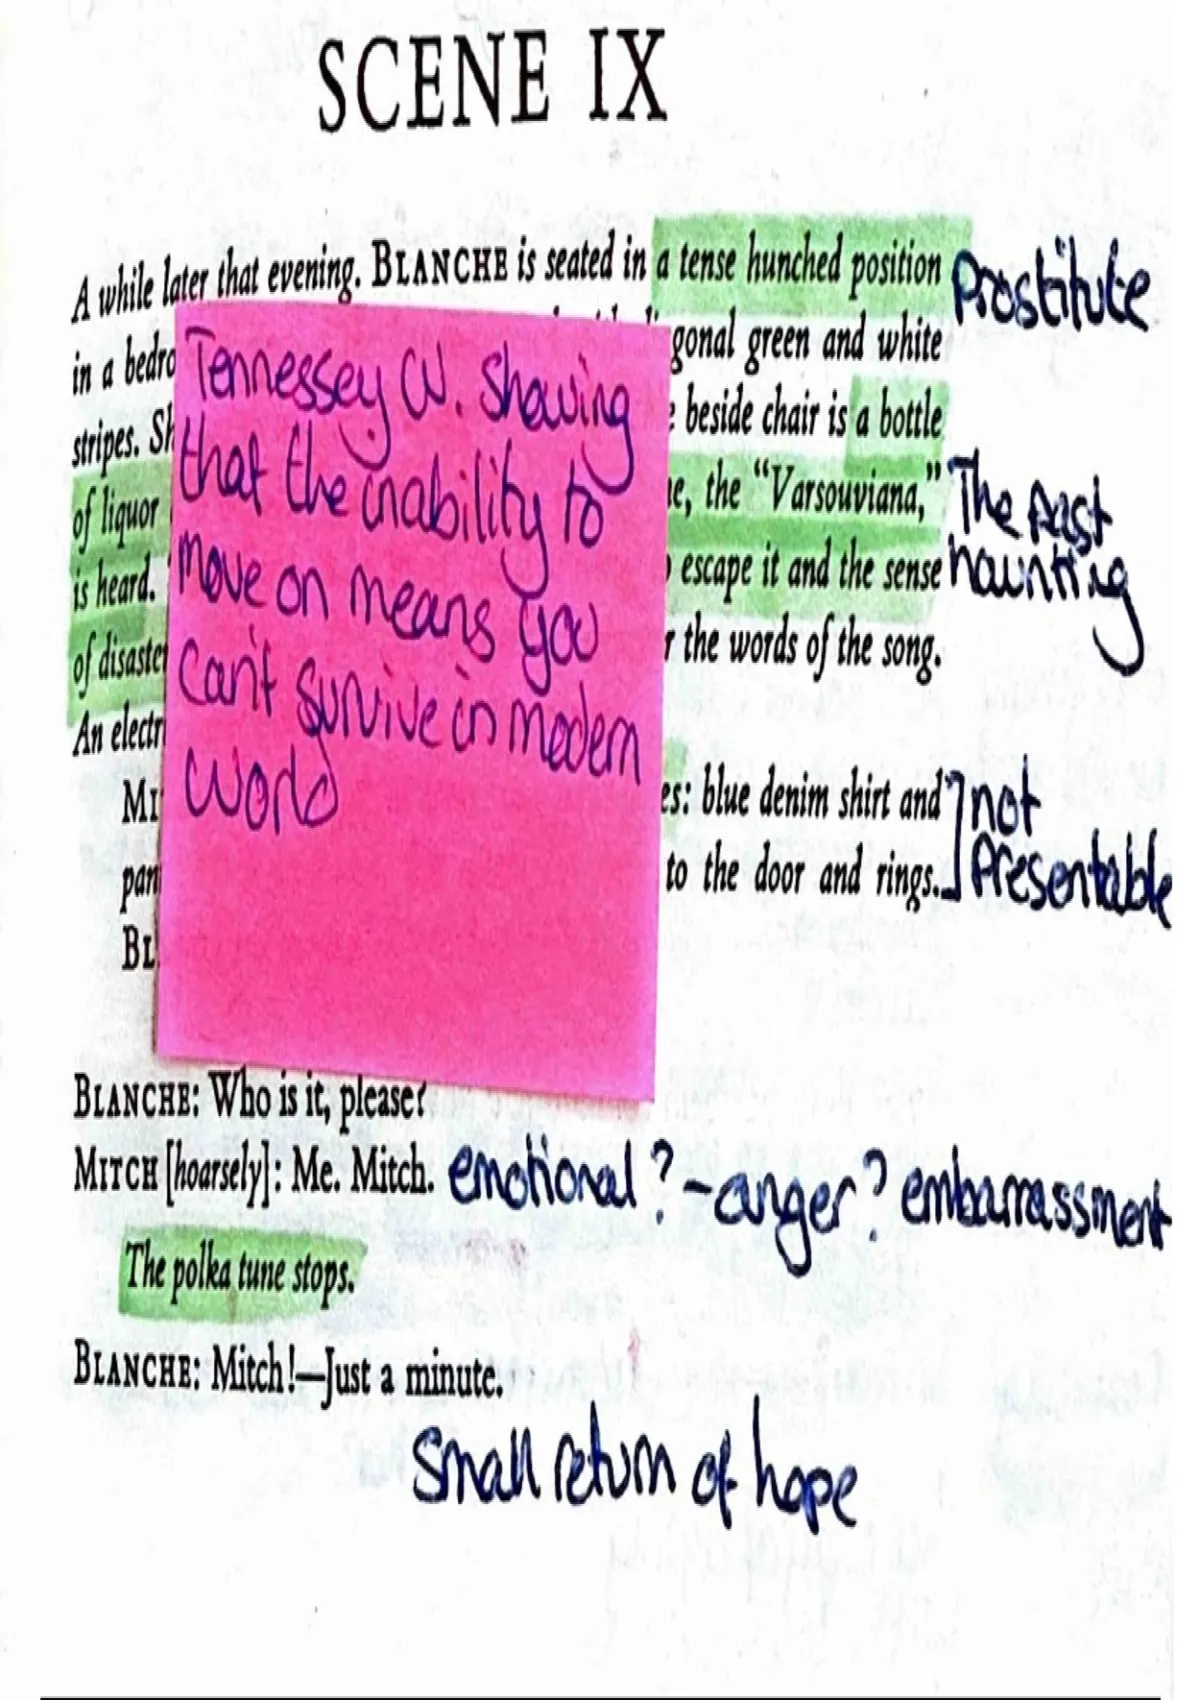 SCENE IX
A while later that evening. BLANCHE is seated in a tense hunched position
Prostitute
in a bedro
gonal green and white
stripes. Sh
beside chair is a bottle
of liquor
the "Varsouviana,"
is heard.
escape it and the sense
The past
haunting
of disaste
the words of the song.
An electr
MI
es: blue denim shirt and
pan
to the door and rings.
not
Presentable
BL
Tennessey W. showing
that the inability to
move on means you
can't survive in modern
world
BLANCHE: Who is it, please?
MITCH [hoarsely]: Me. Mitch. emotional? - anger? embarrassment
The polka tune stops.
BLANCHE: Mitch!—Just a minute.
Small return of hope